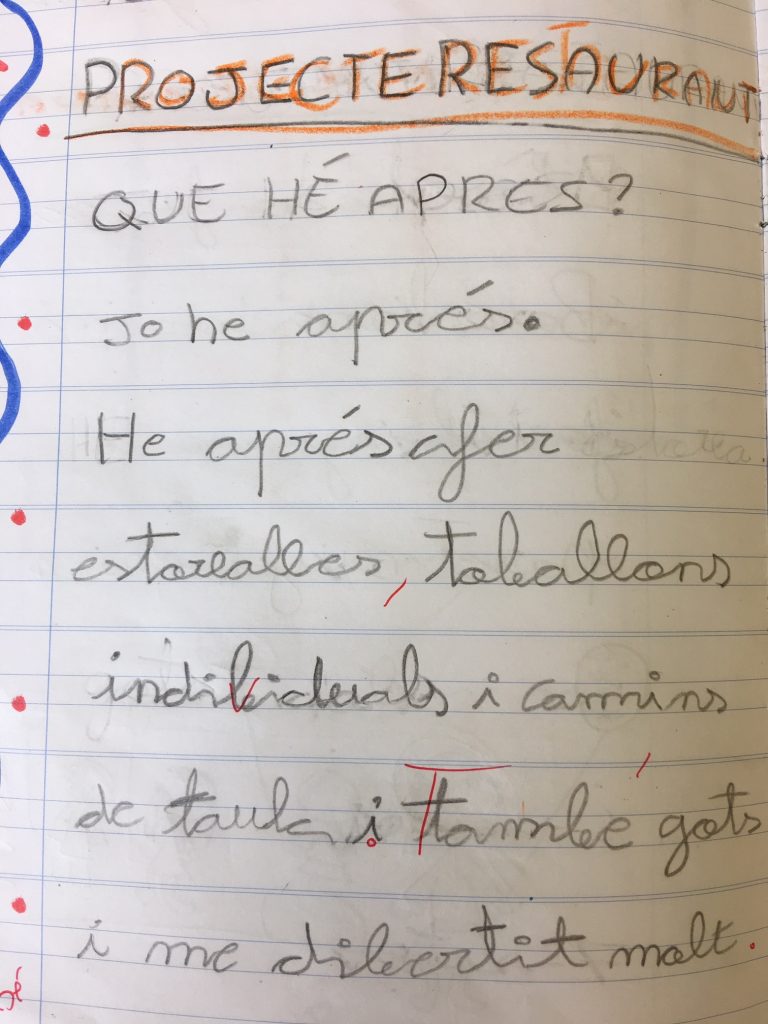 PROJECTE RESTAURANT
QUE HÉ APRES?
Jo he aprés.
He aprés a fer
estoralles, toballons
individuals i camins
de taula. També gots
i me dibertit molt.